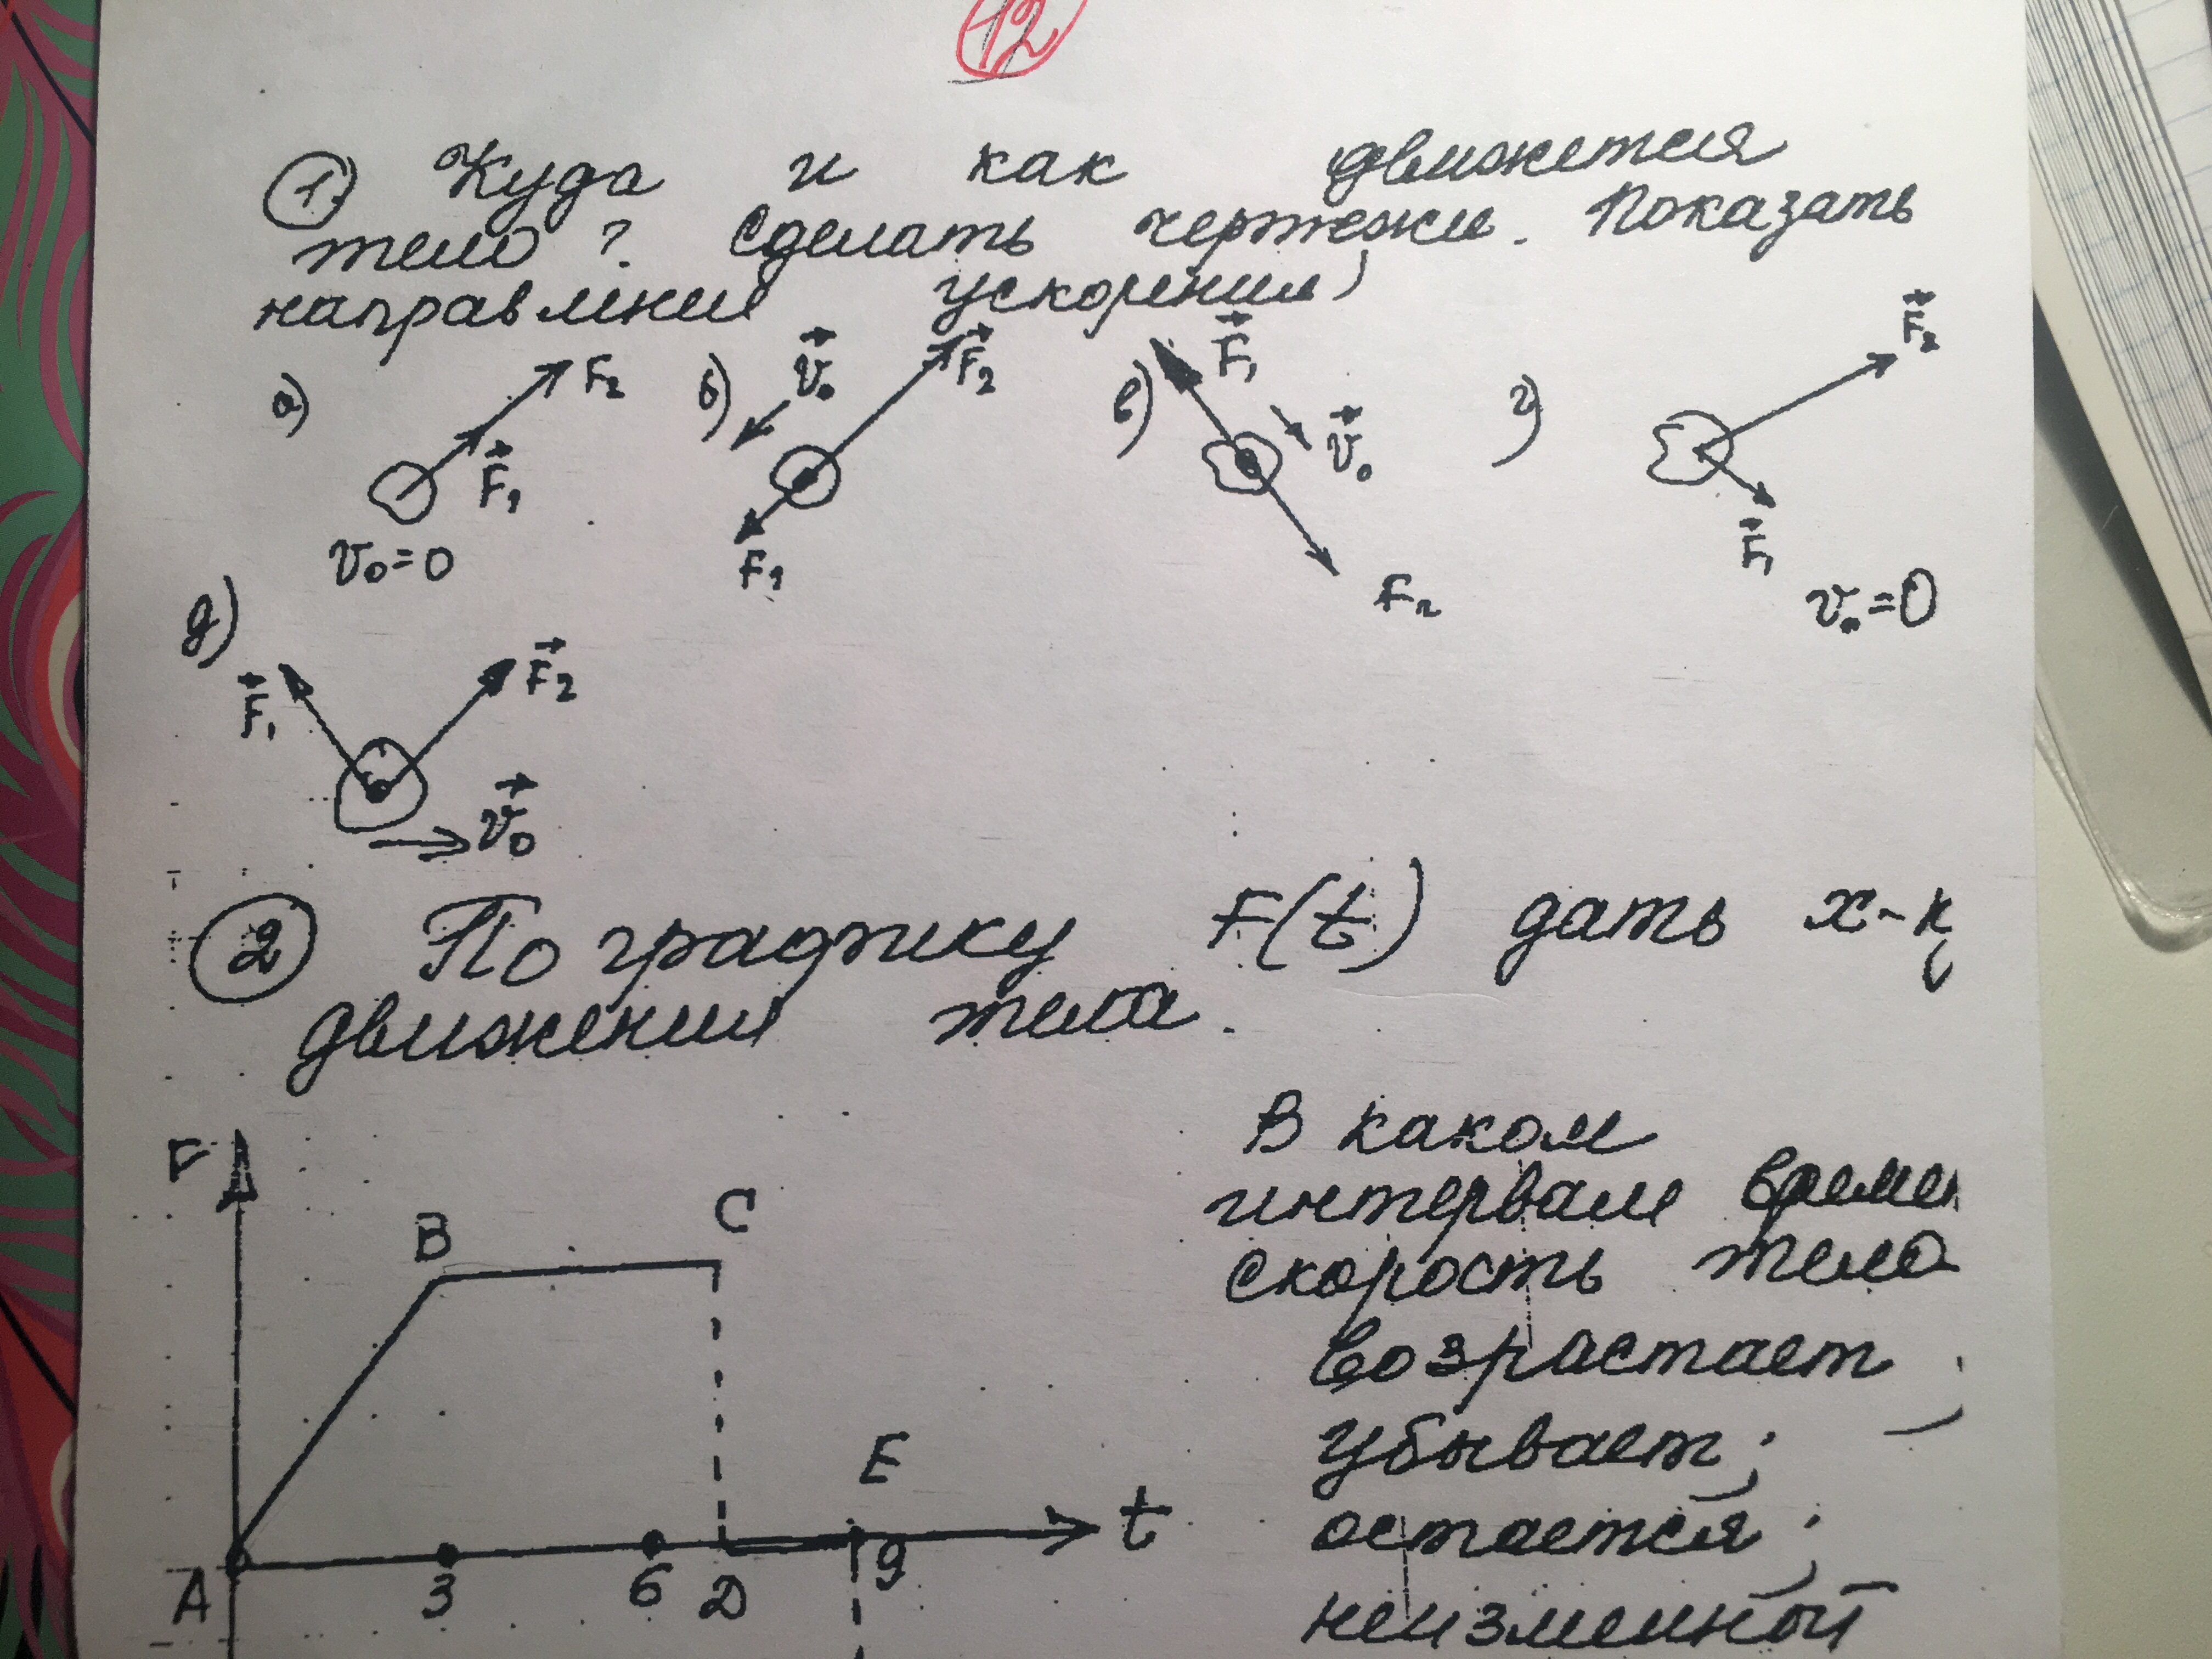 12
① Куда и как движется
тело? Сделать чертежи. Показать
направления ускорения,
а) F₂ F⃗₁ v₀=0
б) v⃗₀ F⃗₂ F₁
в) F⃗₁ v⃗₀ F₂
г) F⃗₂ F⃗₁ v₀=0
д) F⃗₁ F⃗₂ v⃗₀
② По графику F(t) дать х-к
движения тела.
F B C E t
A 3 6 D 9
В каком
интервале време
скорость тела
возрастает;
убывает;
остаетея;
неизменной